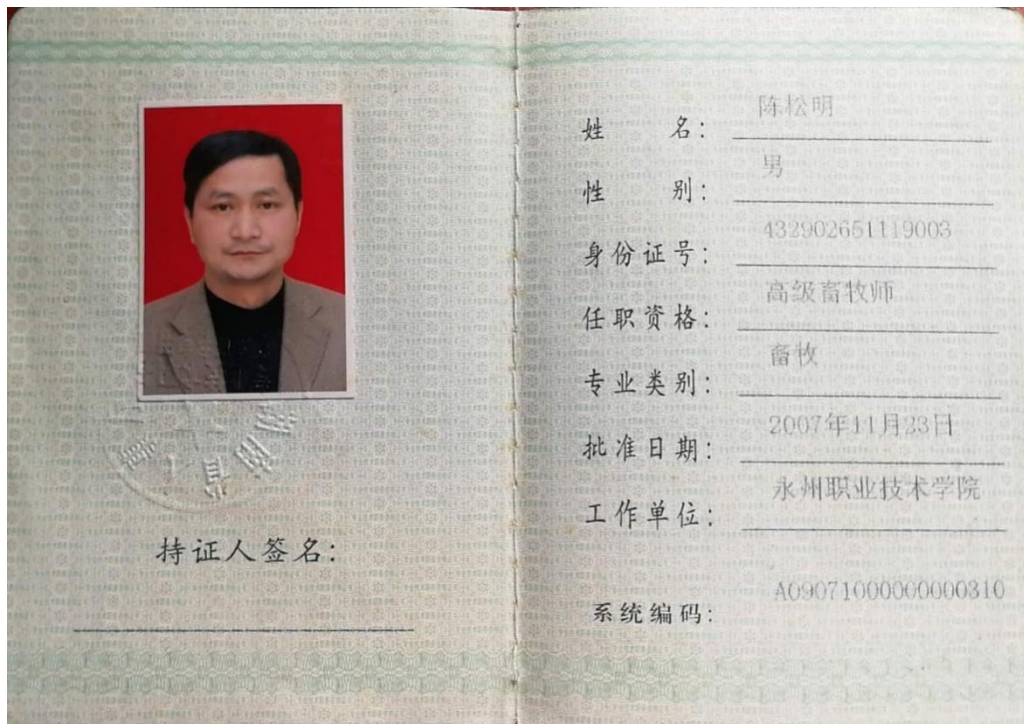 持证人签名：
姓 名： 陈松明
性 别： 男
身份证号： 432902651119003
任职资格： 高级畜牧师
专业类别： 畜牧
批准日期： 2007年11月23日
工作单位： 永州职业技术学院
系统编码： A09071000000000310